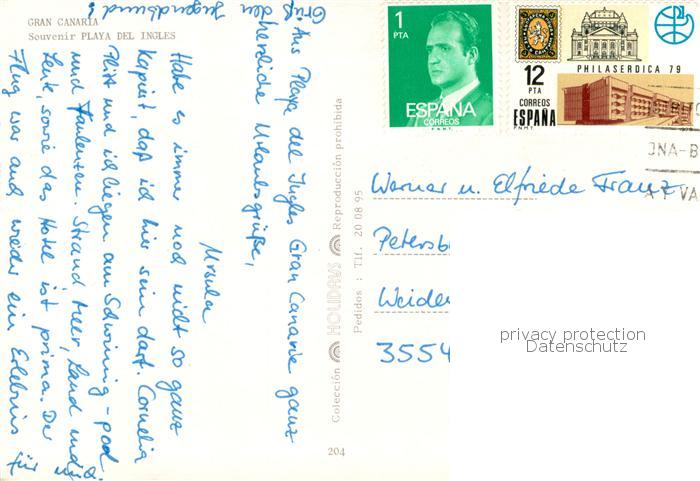 GRAN CANARIA
Souvenir PLAYA DEL INGLES
Aus Playa del Ingles Gran Canaria ganz
herzliche Urlaubsgrüße,
Ursula
Habe es immer noch nicht so ganz
kapiert, daß ich hier sein darf. Cornelia
und ich liegen am Swimming-pool
und faulenzen. Strand Meer, Land und
Leute, sowie das Hotel ist prima. Der
Flug war auch wieder ein Erlebnis für mich.
Gruß den
Jugendbund
Colección HOLIDAYS Reproducción prohibida
Pedidos : Tlf. 20 08 95
204
1
PTA
ESPAÑA
CORREOS
F.N.M.T.
PHILASERDICA 79
12
PTA
CORREOS
ESPAÑA
F.N.M.T.
ONA-B
Werner u. Elfriede Franz
Petersb
Weider
3554
privacy protection
Datenschutz